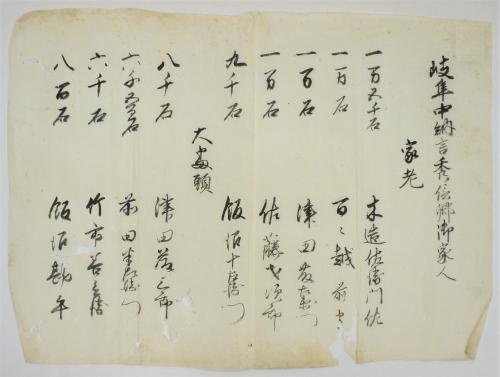 岐阜中納言秀信卿御家人
家老
一万五千石 木造佐衛門佐
一万石 百々越前守
一万石 津田藤左衛門
一万石 佐藤才次郎
九千石 飯沼十左衛門
大番頭
八千石 津田藤三郎
六千五百石 前田半右衛門
六千石 竹市善兵衛
八百石 飯沼勘平